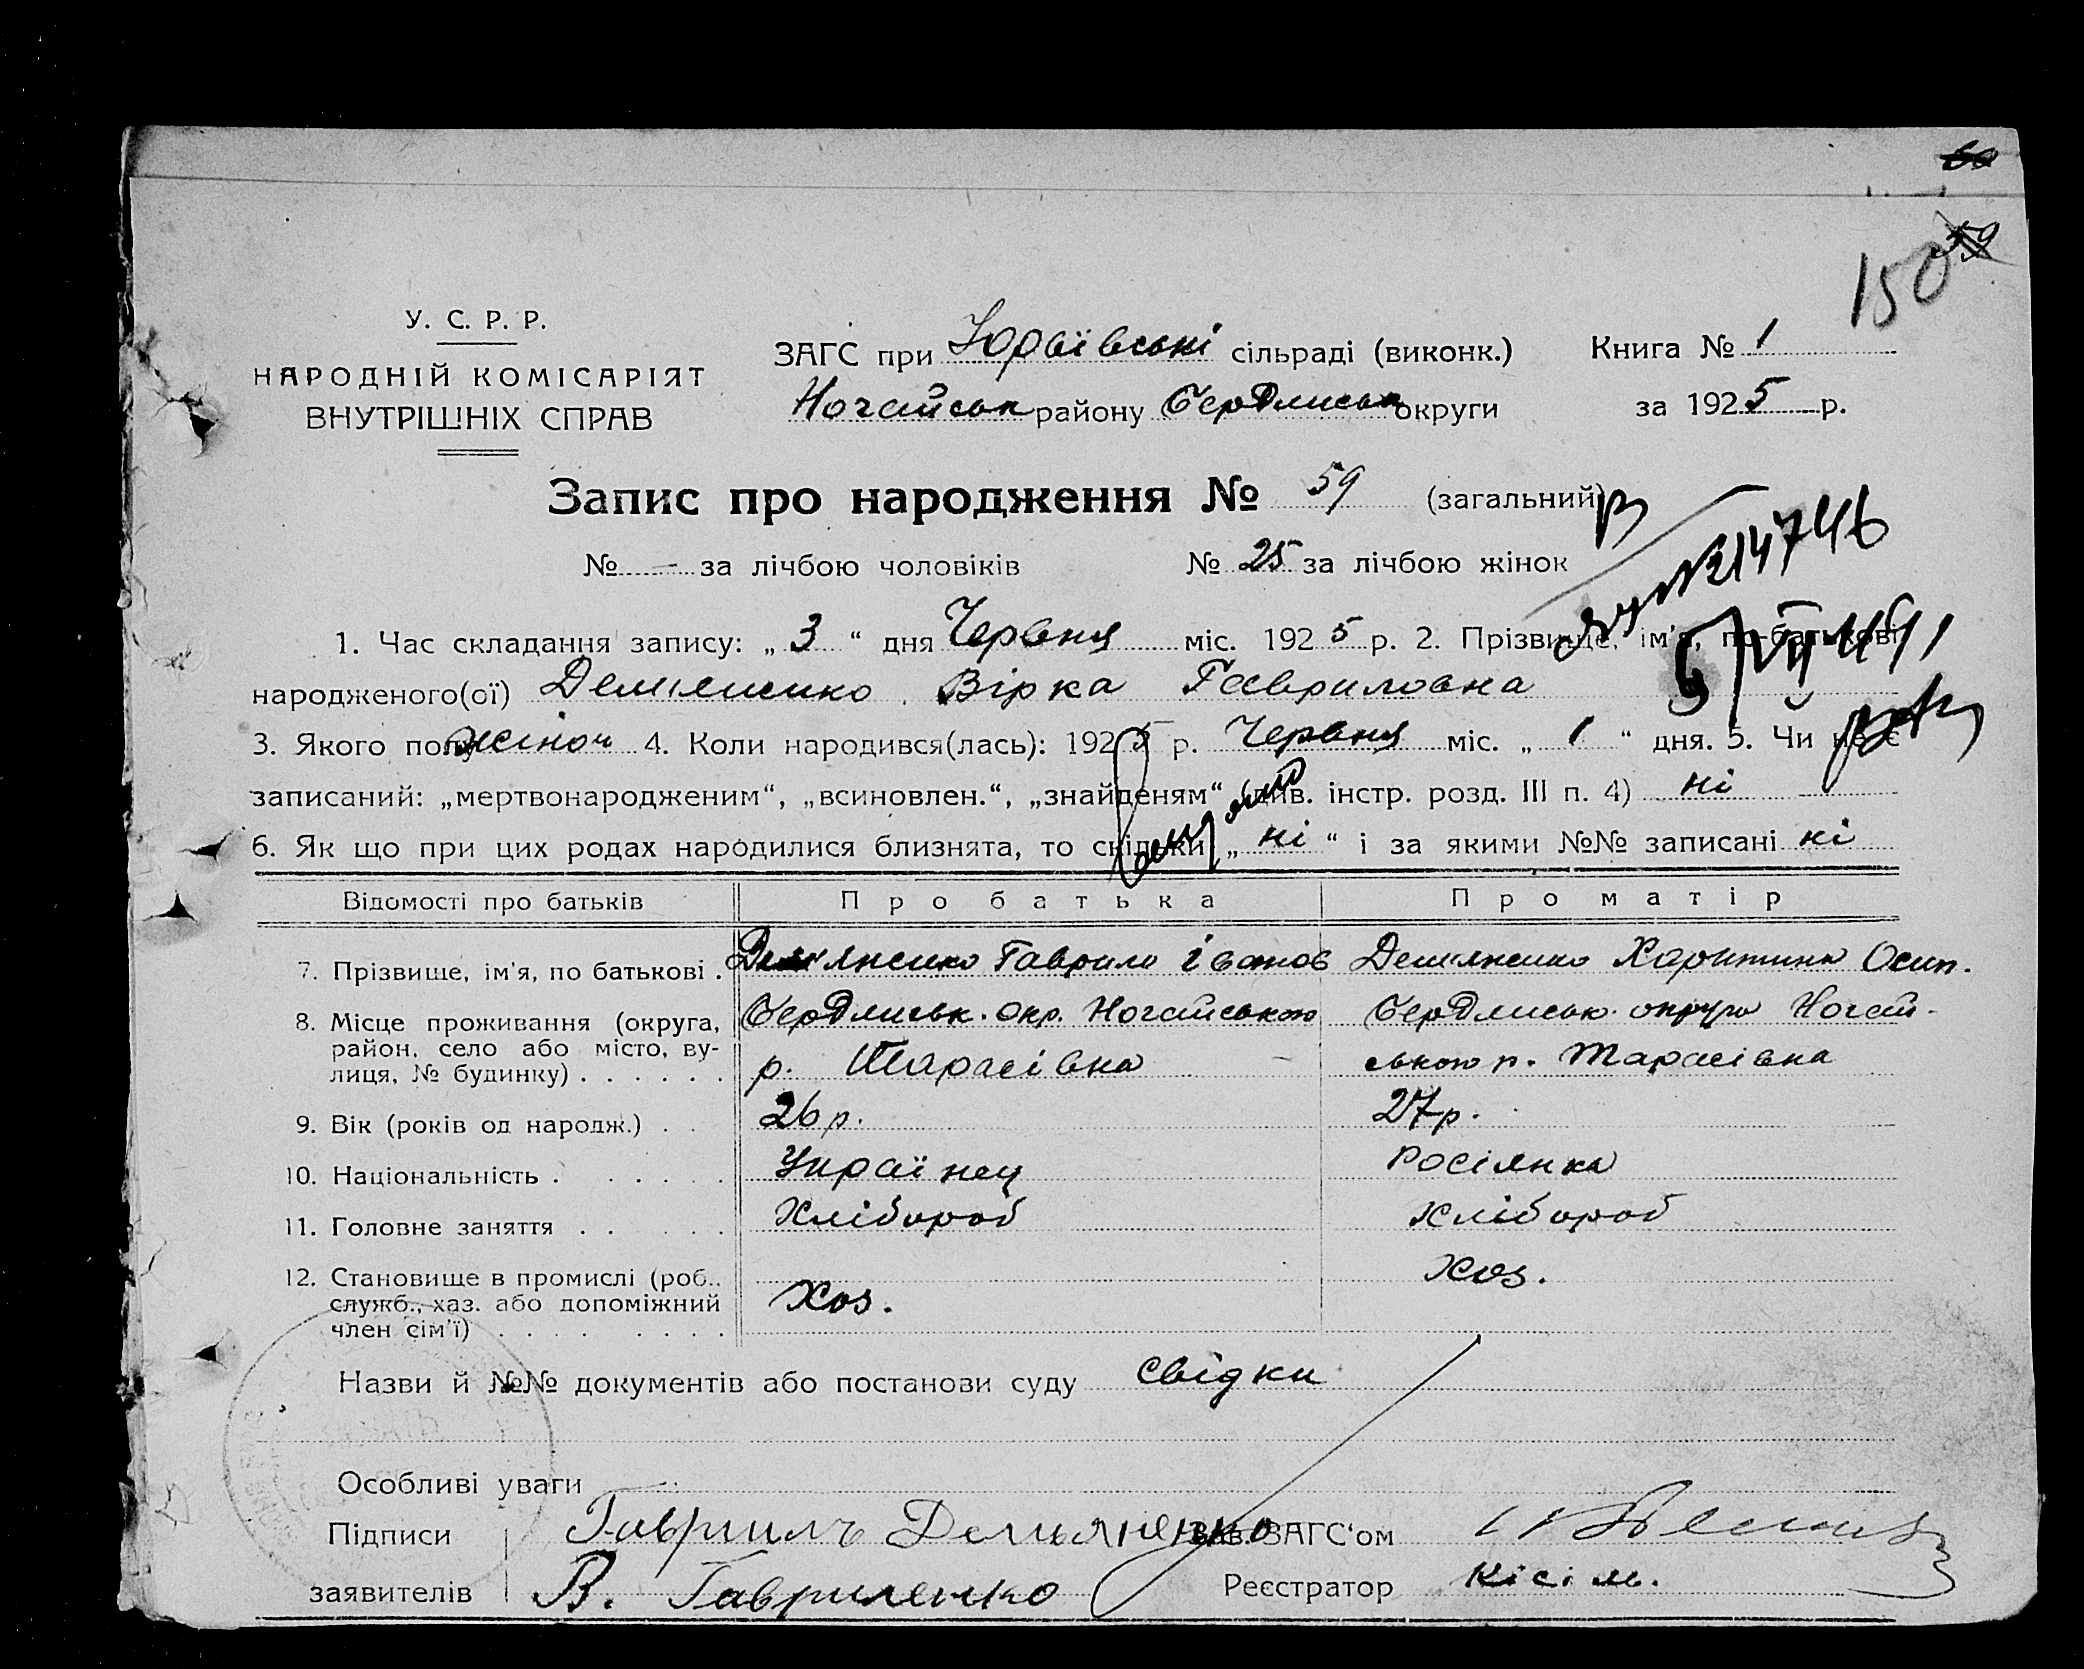 59
150
У. С. Р. Р.
НАРОДНІЙ КОМІСАРІЯТ
ВНУТРІШНІХ СПРАВ
ЗАГС при Юрвівські сільраді (виконк.)
Ногайськ району Бердянськ округи
Книга № 1
за 1925 р.
Запис про народження № 59 (загальний)
№ — за лічбою чоловіків № 25 за лічбою жінок
1. Час складання запису: „ 3 “ дня Червня міс. 1925 р. 2. Прізвище, ім'я, по-батькові
народженого(ої) Демяненко Вірка Гавриловна
3. Якого полу жіноч 4. Коли народився(лась): 1925 р. Червня міс. „ 1 “ дня. 5. Чи не є
записаний: „мертвонародженим“, „всиновлен.“, „знайденям“ (див. інстр. розд. III п. 4) ні
6. Як що при цих родах народилися близнята, то скільки „ ні “ і за якими №№ записані ні
Відомості про батьків Про батька Про матір
7. Прізвище, ім'я, по батькові . Демяненко Гаврило Іванов Демяненко Харитина Осип.
8. Місце проживання (округа, район, село або місто, вулиця, № будинку) . . . . . .
Бердянськ. окр. Ногайського Бердянськ. округи Ногай-
р. Тарасівка ського р. Тарасівка
9. Вік (років од народж.) . . 26 р. 27 р.
10. Національність . . . . . . Українец Росіянка
11. Головне заняття . . . . . Хлібороб Хлібороб
12. Становище в промислі (роб., служб., хаз. або допоміжний член сім'ї) . . . . . . . .
Хоз. Хоз.
Назви й №№ документів або постанови суду свідки
Особливі уваги
Підписи Гаврилъ Демьяненко Зав. ЗАГС'ом
заявителів В. Гавриленко Реєстратор